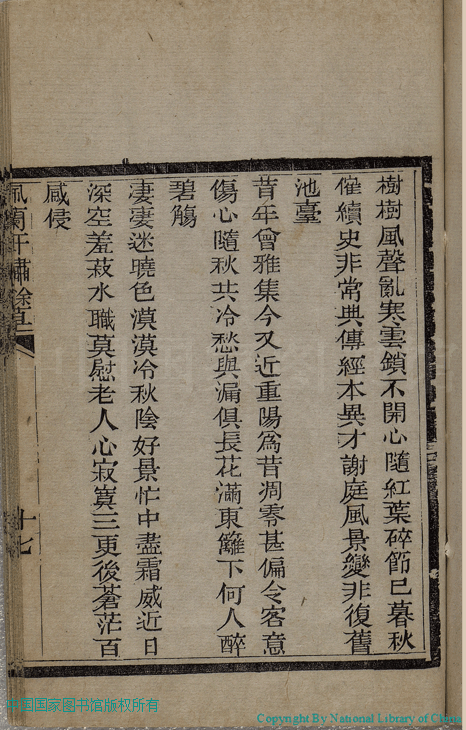 樹樹風聲亂寒雲鎖不開心隨紅葉碎節已暮秋
催續史非常典傳經本異才謝庭風景變非復舊
池臺
昔年曾雅集今又近重陽為昔凋零甚偏令客意
傷心隨秋共冷愁與漏俱長花滿東籬下何人醉
碧觴
淒淒迷曉色漠漠冷秋陰好景忙中盡霜威近日
深空羞菽水職莫慰老人心寂寞三更後蒼茫百
感侵
佩蘭軒繡餘草
十七
中国国家图书馆版权所有
Copyright By National Library of China